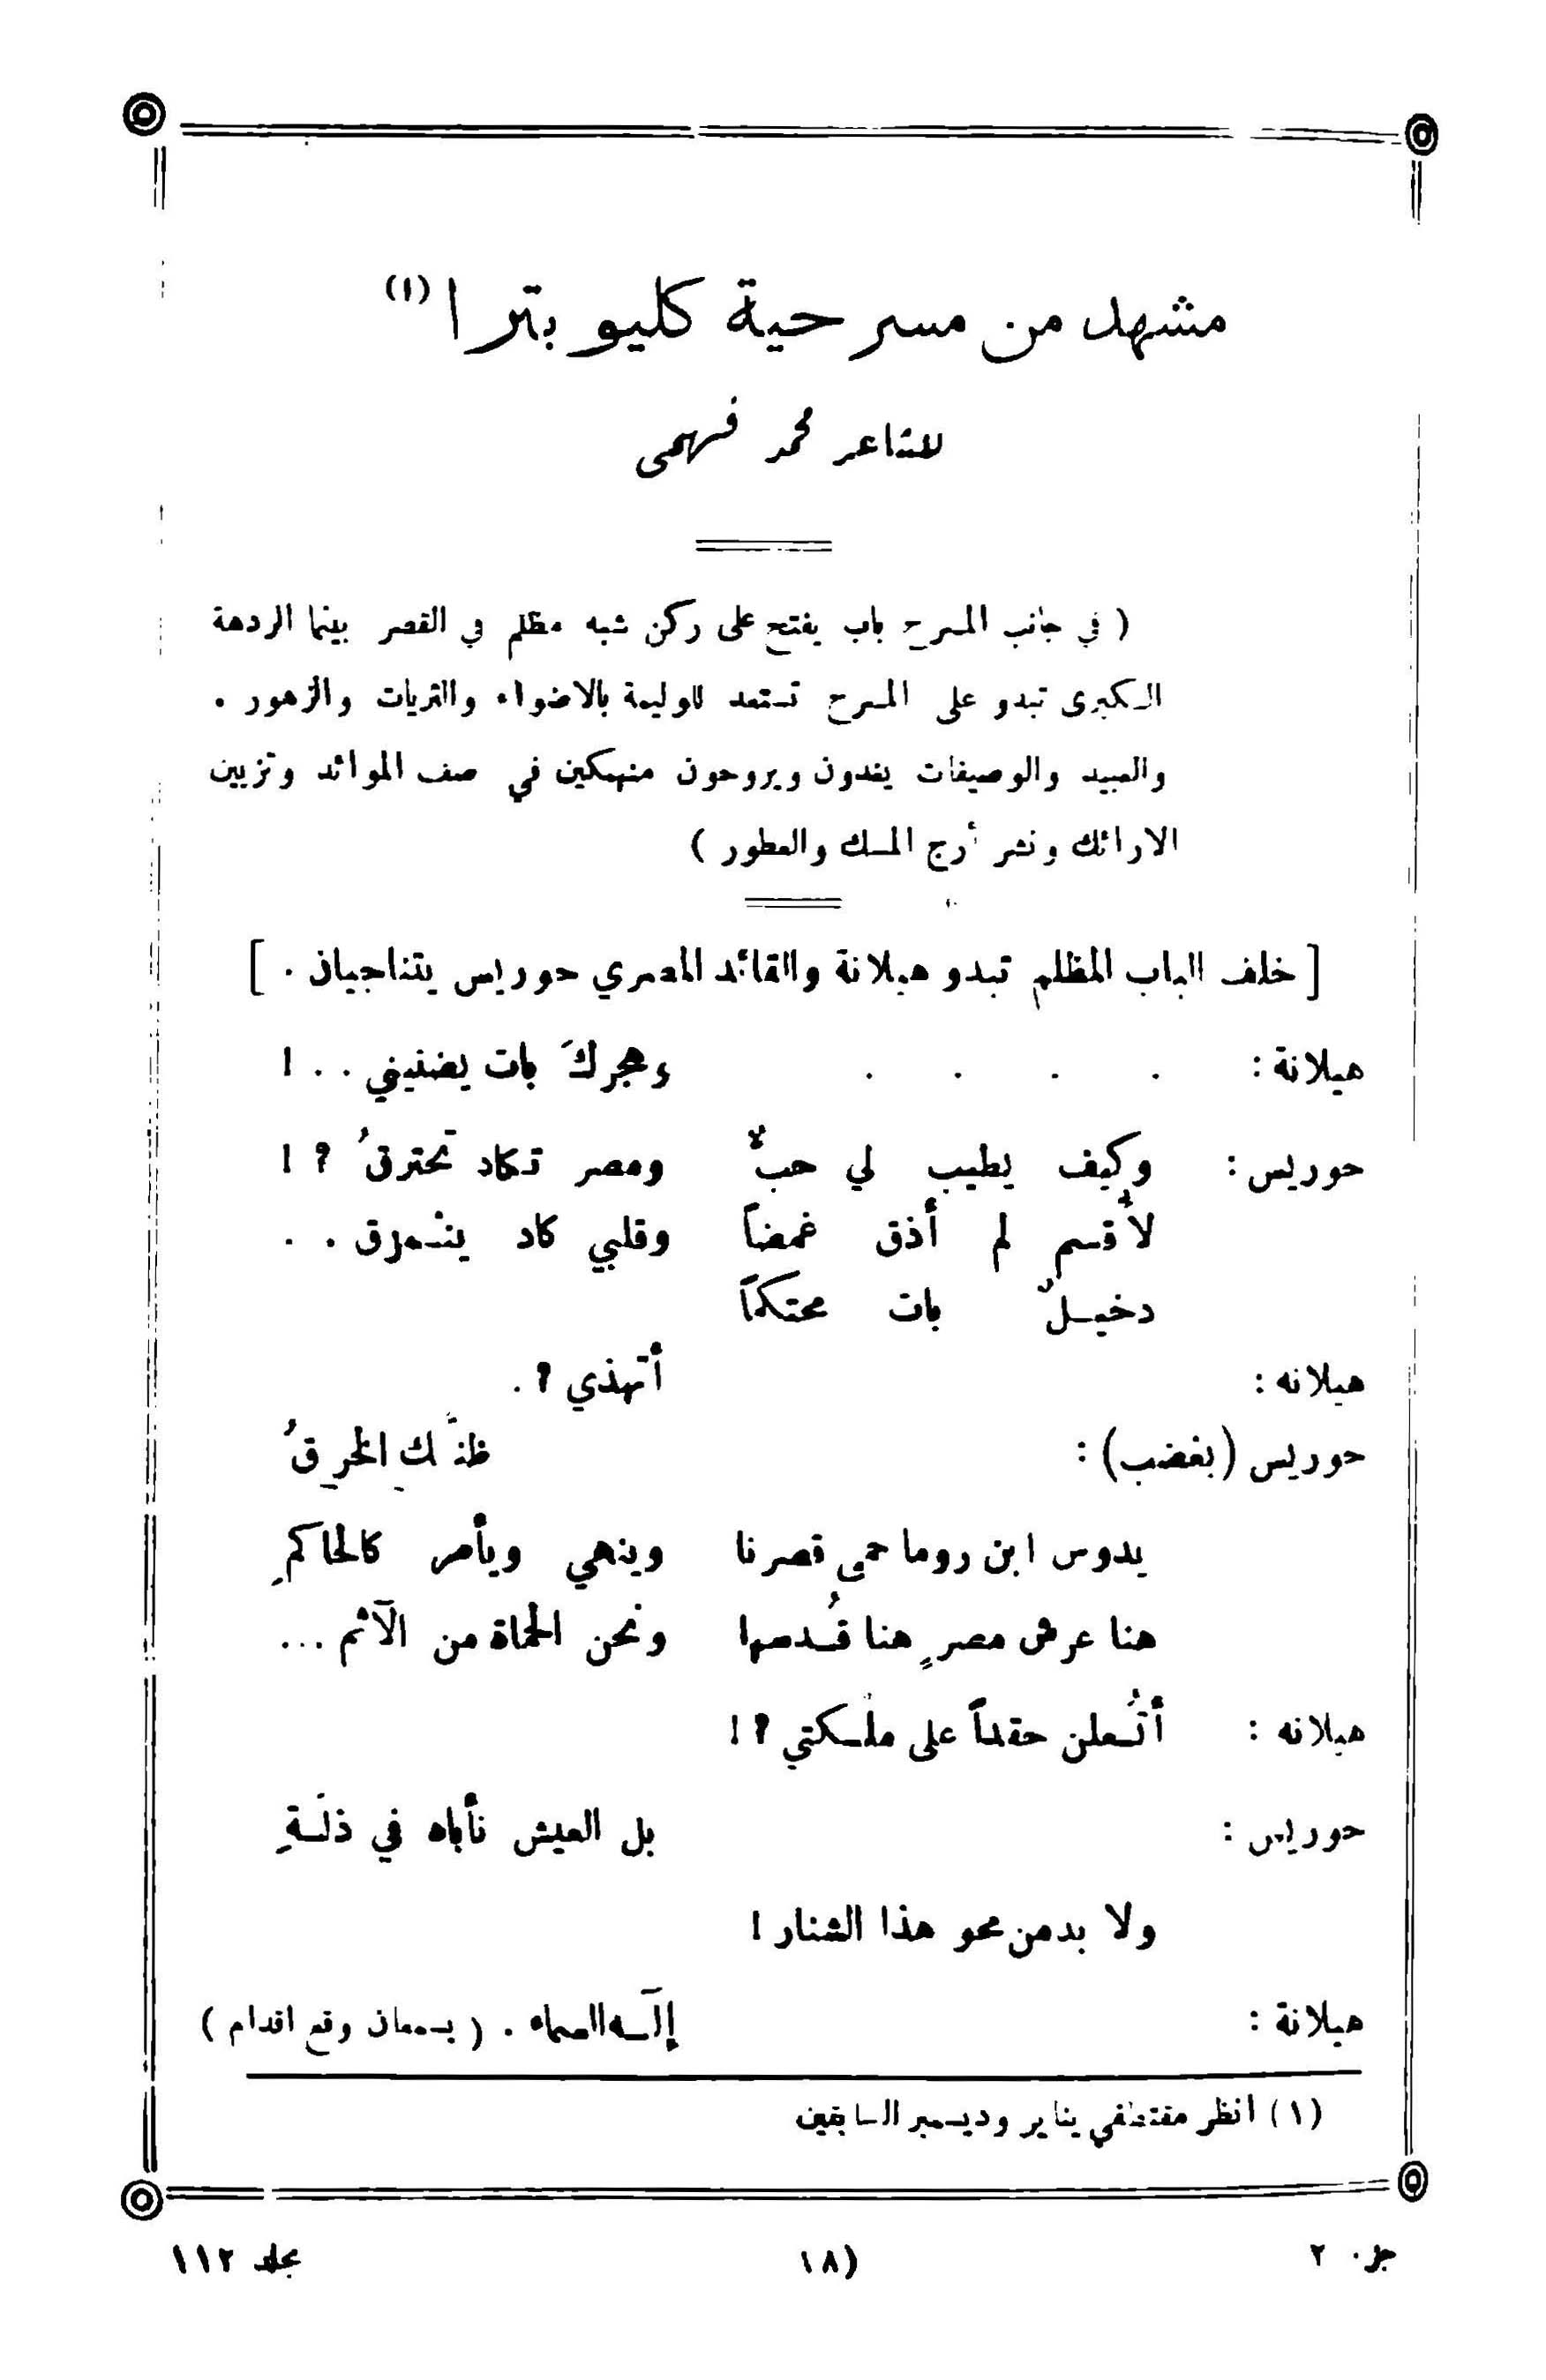 مشهد من مسرحية كليوبترا (١)
للشاعر محمد فهمى
( في جانب المسرح باب يفتح على ركن شبه مظلم في القصر بينما الردهة
الكبرى تبدو على المسرح تستعد للوليمة بالاضواء والثريات والزهور .
والعبيد والوصيفات يغدون ويروحون منهمكين في صف الموائد وتزيين
الارائك ونشر أرج المسك والعطور )
[ خلف الباب المظلم تبدو هيلانة والقائد المصري حوريس يتناجيان . ]
هيلانة : . . . . وهجركَ بات يضنيني . . !
حوريس : وكيف يطيب لي حبٌّ ومصر تكاد تحترقُ ؟ !
لأُقسم لم أذق غمضاً وقلبي كاد ينمزق . .
دخيلٌ بات محتكماً
هيلانه : أتهذي ؟ .
حوريس (بغضب) : ظنَّكِ الخرِقُ
يدوس ابن روما حمى قصرنا وينهي ويأمر كالحاكمِ
هنا عرش مصرٍ هنا قُدسها ونحن الحماة من الآثم ...
هيلانه : أتُعلن حقداً على ملْكتي ؟ !
حوريس : بل العيش نأباه في ذلَّةِ
ولا بد من محو هذا الشنار !
هيلانة : إلَـه السماء . ( يسمعان وقع اقدام )
(١) أنظر مقتطفي يناير وديسمبر السابقين
جزء ٢ (١٨ مجلد ١١٢